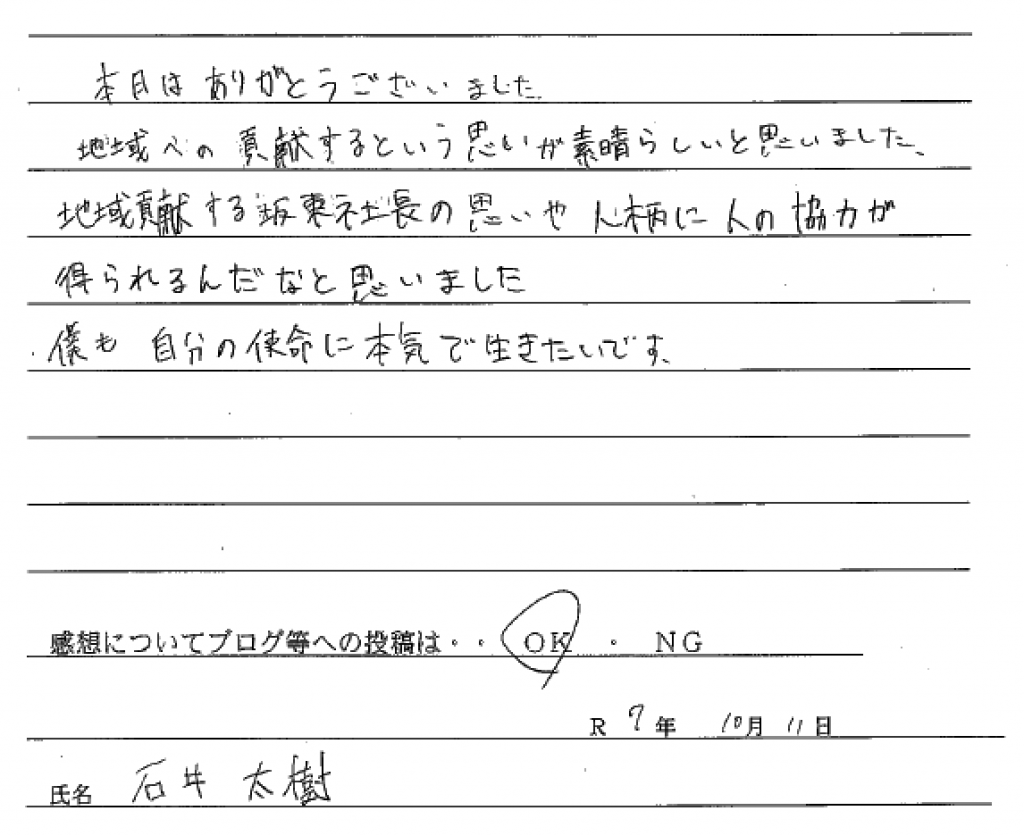 本日は ありがとうございました.
地域への 貢献するという思いが素晴らしいと思いました、
地域貢献する坂東社長の思いや人柄に人の協力が
得られるんだなと思いました
僕も 自分の使命に本気で生きたいです。
感想についてブログ等への投稿は・・ OK ・ NG
R 7年 10月 11日
氏名 石井 太樹